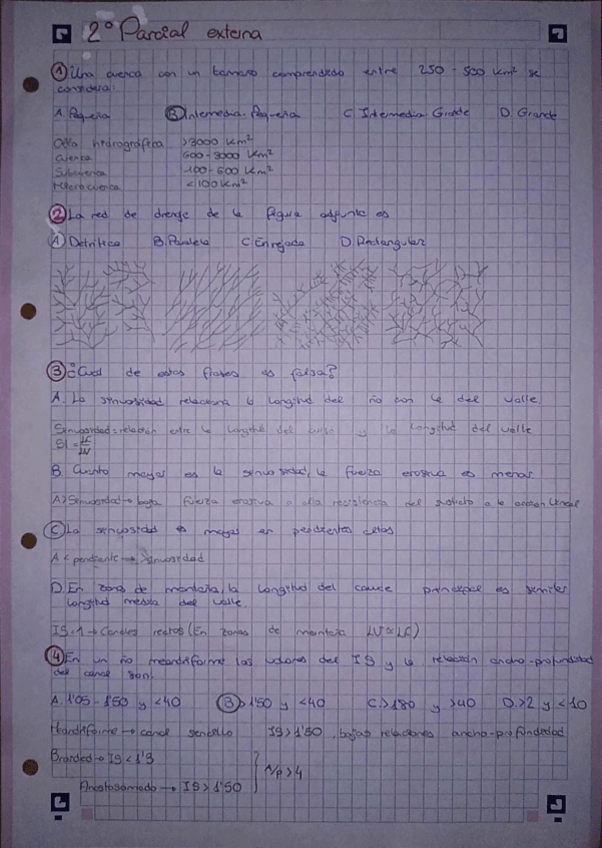 2º Parcial externa
① Una cuenca con un tamaño comprendido entre 250 - 500 Km² se
considera:
A. Pequeña B. Intermedia-Pequeña C Intermedia-Grande D. Grande
hidrográfica >3000 Km²
Cuenca 600-3000 Km²
Subcuenca 100-600 Km²
Microcuenca <100 Km²
② La red de drenge de la figura adjunta es
A Detrítica B. Paralela C Enrejada D. Rectangular
③ ¿Cual de estas frases es falsa?
A. La sinuosidad relaciona la longitud del río con la del valle.
Sinuosidad = relación entre la longitud del curso y la longitud del valle
SI = LC/LV
B. Cuanto mayor es la sinuosidad, la fuerza erosiva es menor.
A > Sinuosidad → baja fuerza erosiva o alta resistencia del sustrato a la acción lineal
C La sinuosidad es mayor en pendientes altas
A < pendiente → > sinuosidad
D. En zona de montaña, la longitud del cauce principal es similar
longitud media del valle.
IS = 1 → Canales rectos (En zonas de montaña LV ≈ LC)
④ En un río meandriforme los valores del IS y la relación ancho-profundidad
del canal son:
A. 1'05 - 1'50 y <40 B >1'50 y <40 C. >1'80 y >40 D. >2 y <10
Meandriforme → canal sencillo IS > 1'50, bajas relaciones ancho-profundidad
Braided → IS < 1'3
A/p > 4
Anastosamado → IS > 1'50